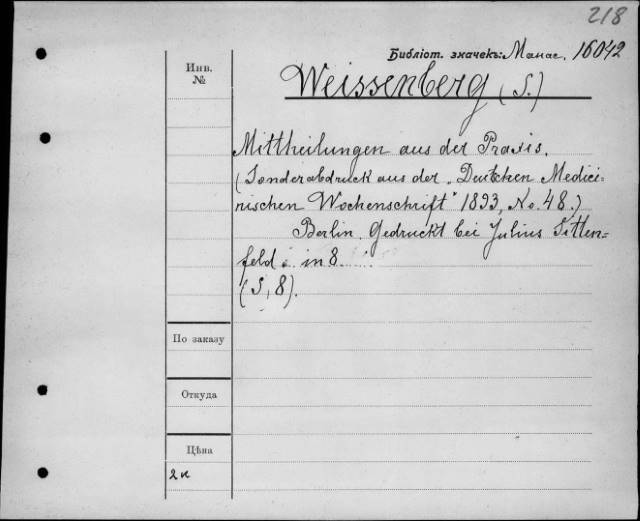 218
Библіот. значекъ: Манас. 16042
Инв.
№
Weissenberg (S.)
Mittheilungen aus der Praxis.
(Sonderabdruck aus der „Deutschen Medici-
nischen Wochenschrift" 1893, No. 48.)
Berlin. Gedruckt bei Julius Sitten-
feld. in 8.
(S, 8).
По заказу
Откуда
Цѣна
2к